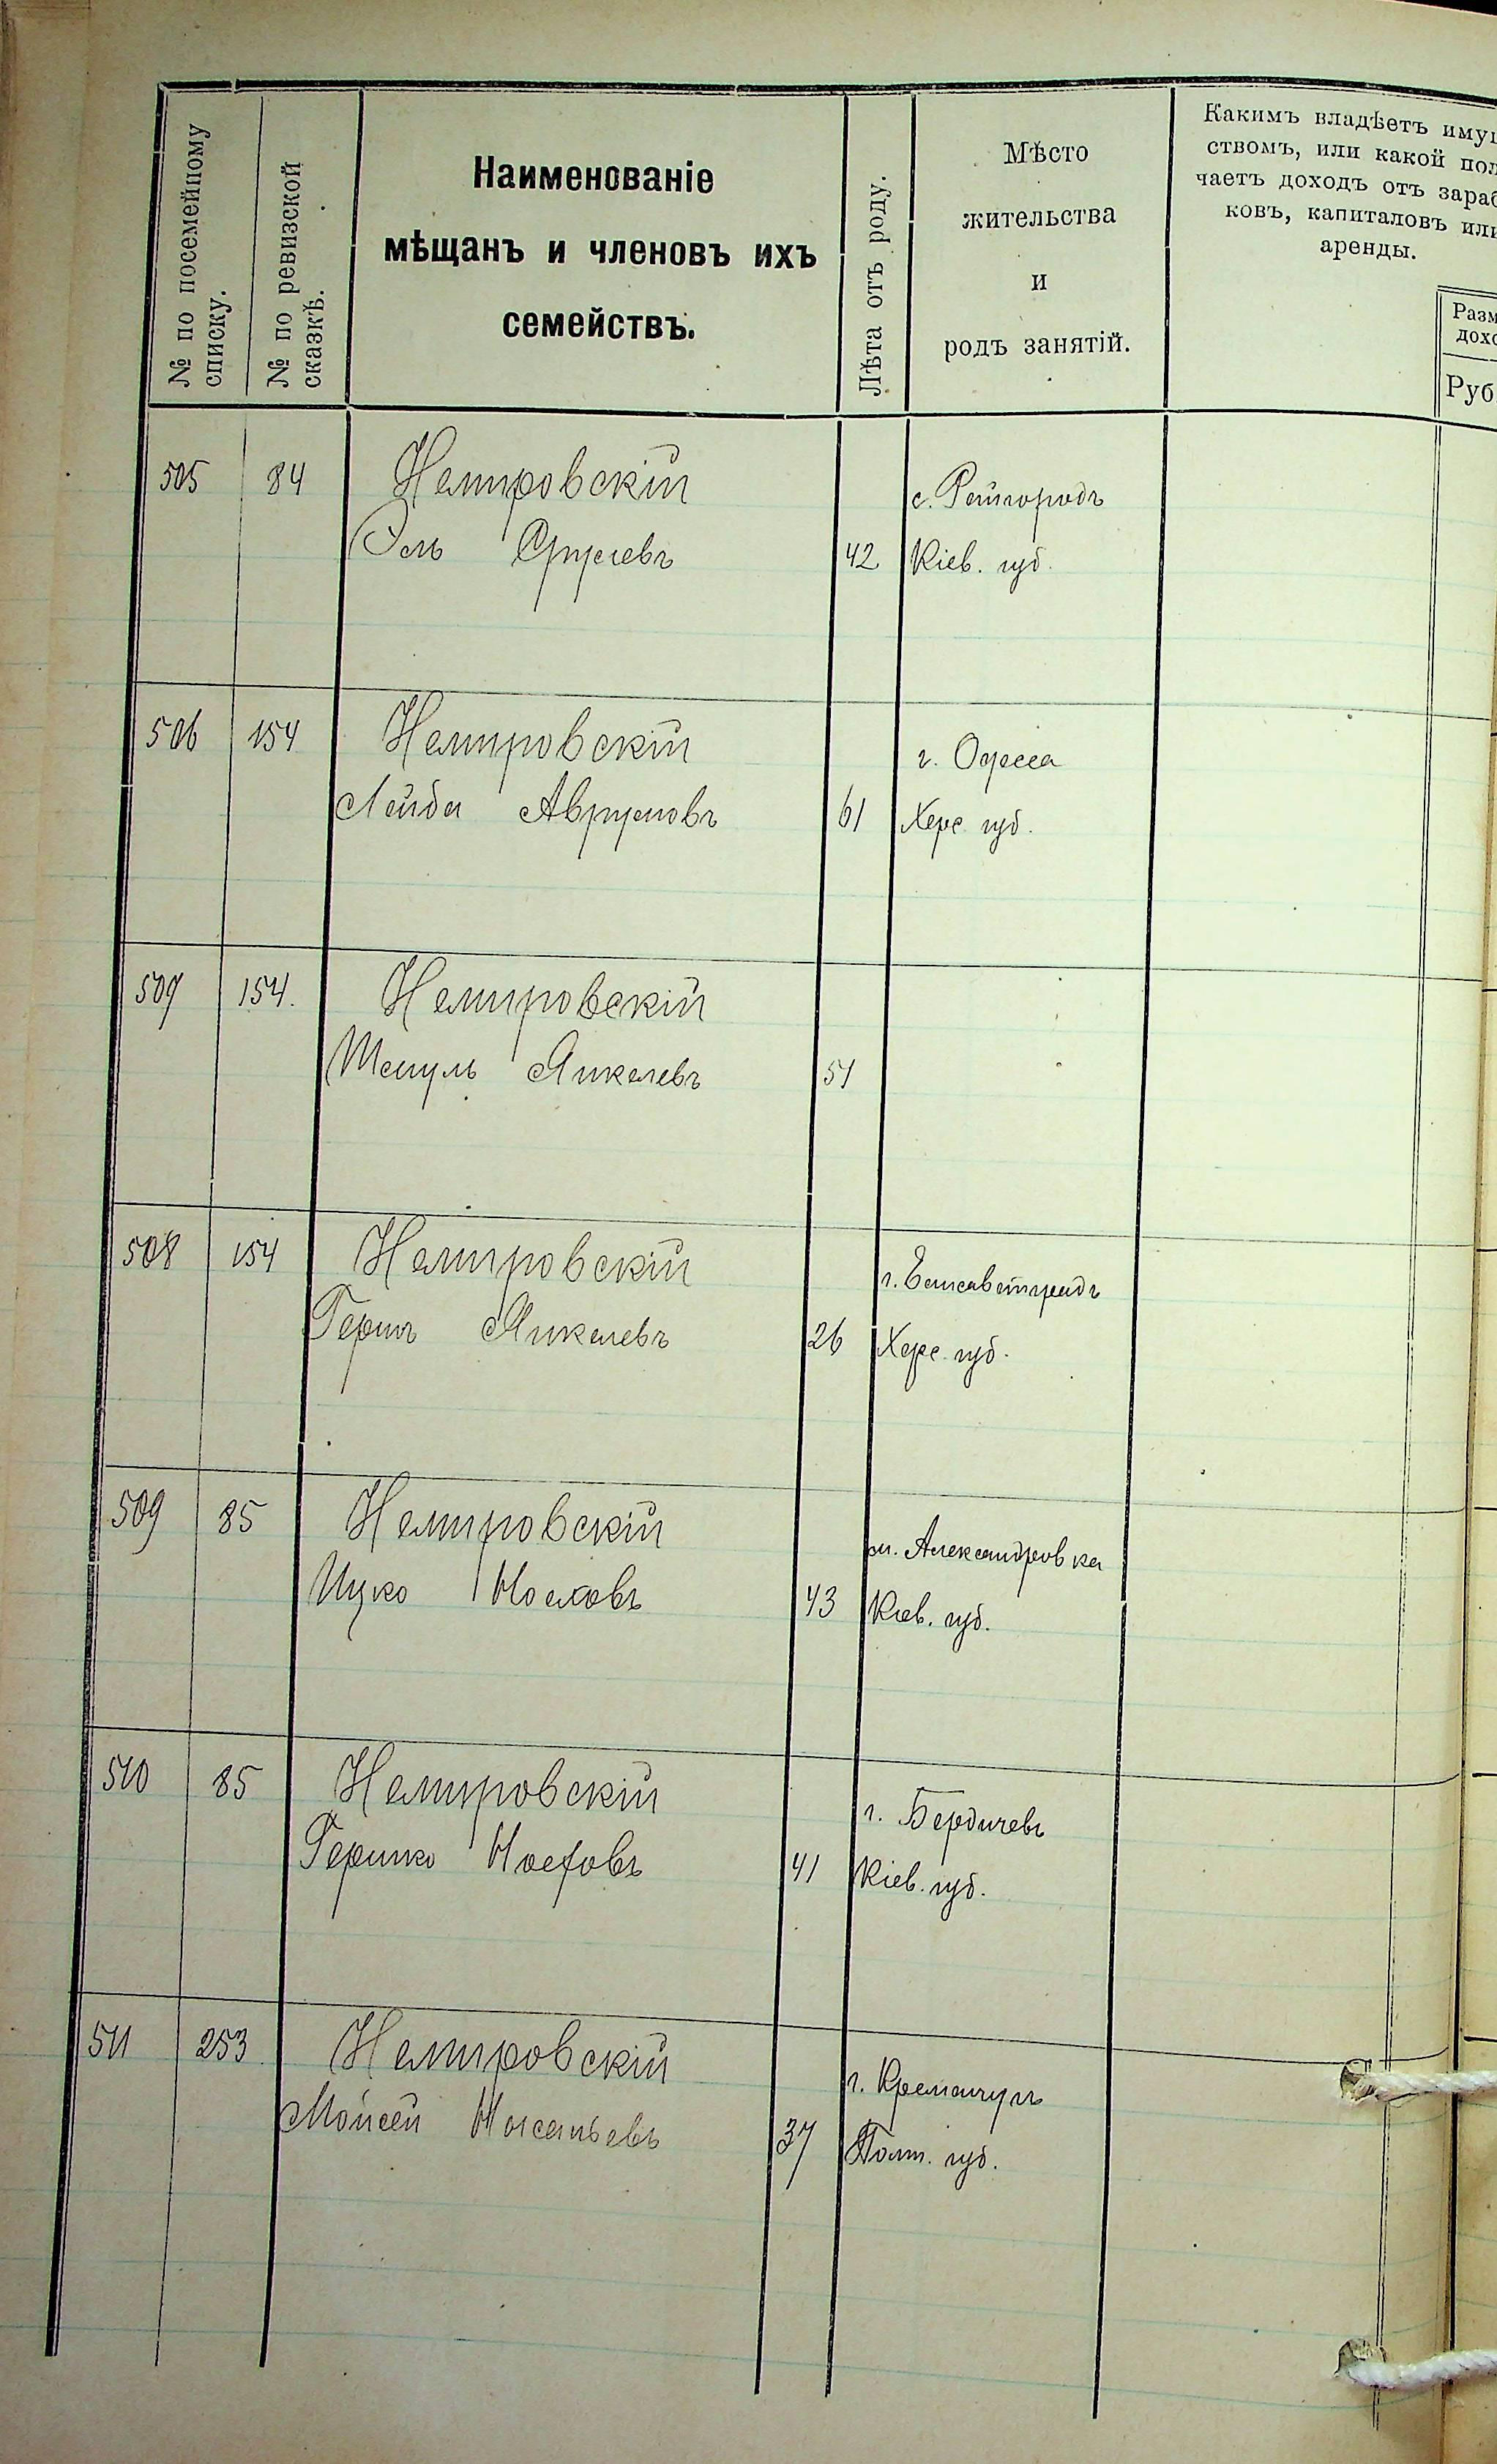 № по посемейному
списку.
№ по ревизской
сказкѣ.
Наименованіе
мѣщанъ и членовъ ихъ
семействъ.
Лѣта отъ роду.
Мѣсто
жительства
и
родъ занятій.
Какимъ владѣетъ имущ
ствомъ, или какой пол
чаетъ доходъ отъ зараб
ковъ, капиталовъ или
аренды.
Разм
дохо
Руб
505 84 Немировскій
с. Ротмородъ
Эль Срулевъ 42 Кіев. губ.
506 154 Немировскій
г. Одесса
Лейба Аврумовъ 61 Херс. губ.
507 154. Немировскій
Шмуль Янкелевъ 51
508 154 Немировскій
г. Елисаветградъ
Герш Янкелевъ 26 Херс. губ.
509 85 Немировскій
м. Александровка
Ицко Иосковъ 43 Кіев. губ.
510 85 Немировскій
г. Бердичевъ
Гершко Иосфовъ 41 Кіев. губ.
511 253 Немировскій
г. Кременчугъ
Мойсей 37 Полт. губ.